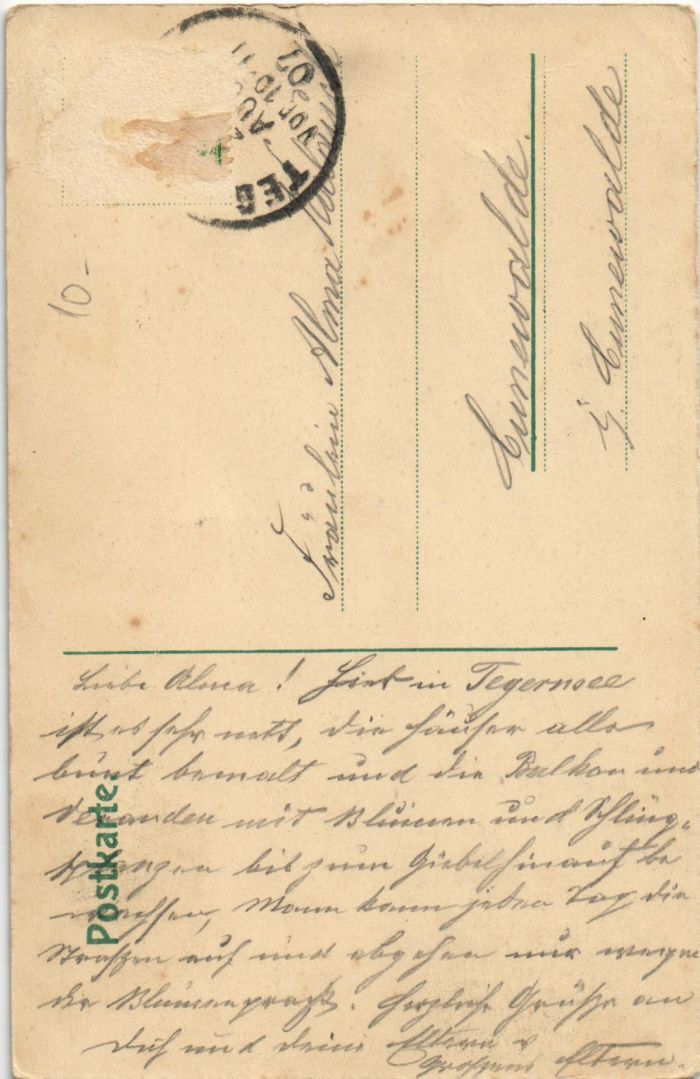 Postkarte.
TEG
AUG
VOR 10-11
07
10-
Fräulein Alma
Cunewalde.
Cunewalde
Liebe Alma! Hier in Tegernsee
ist es sehr nett, die Häuser alle
bunt bemalt und die Balkon und
Veranden mit Blumen und Schling-
pflanzen bis zum Giebel hinauf be
wachsen, Mann kann jeden Tag die
Straßen auf und abgehen nur wegen
der Blumenpracht. Herzliche Grüße an
Dich und deine Eltern u
Großens Eltern.